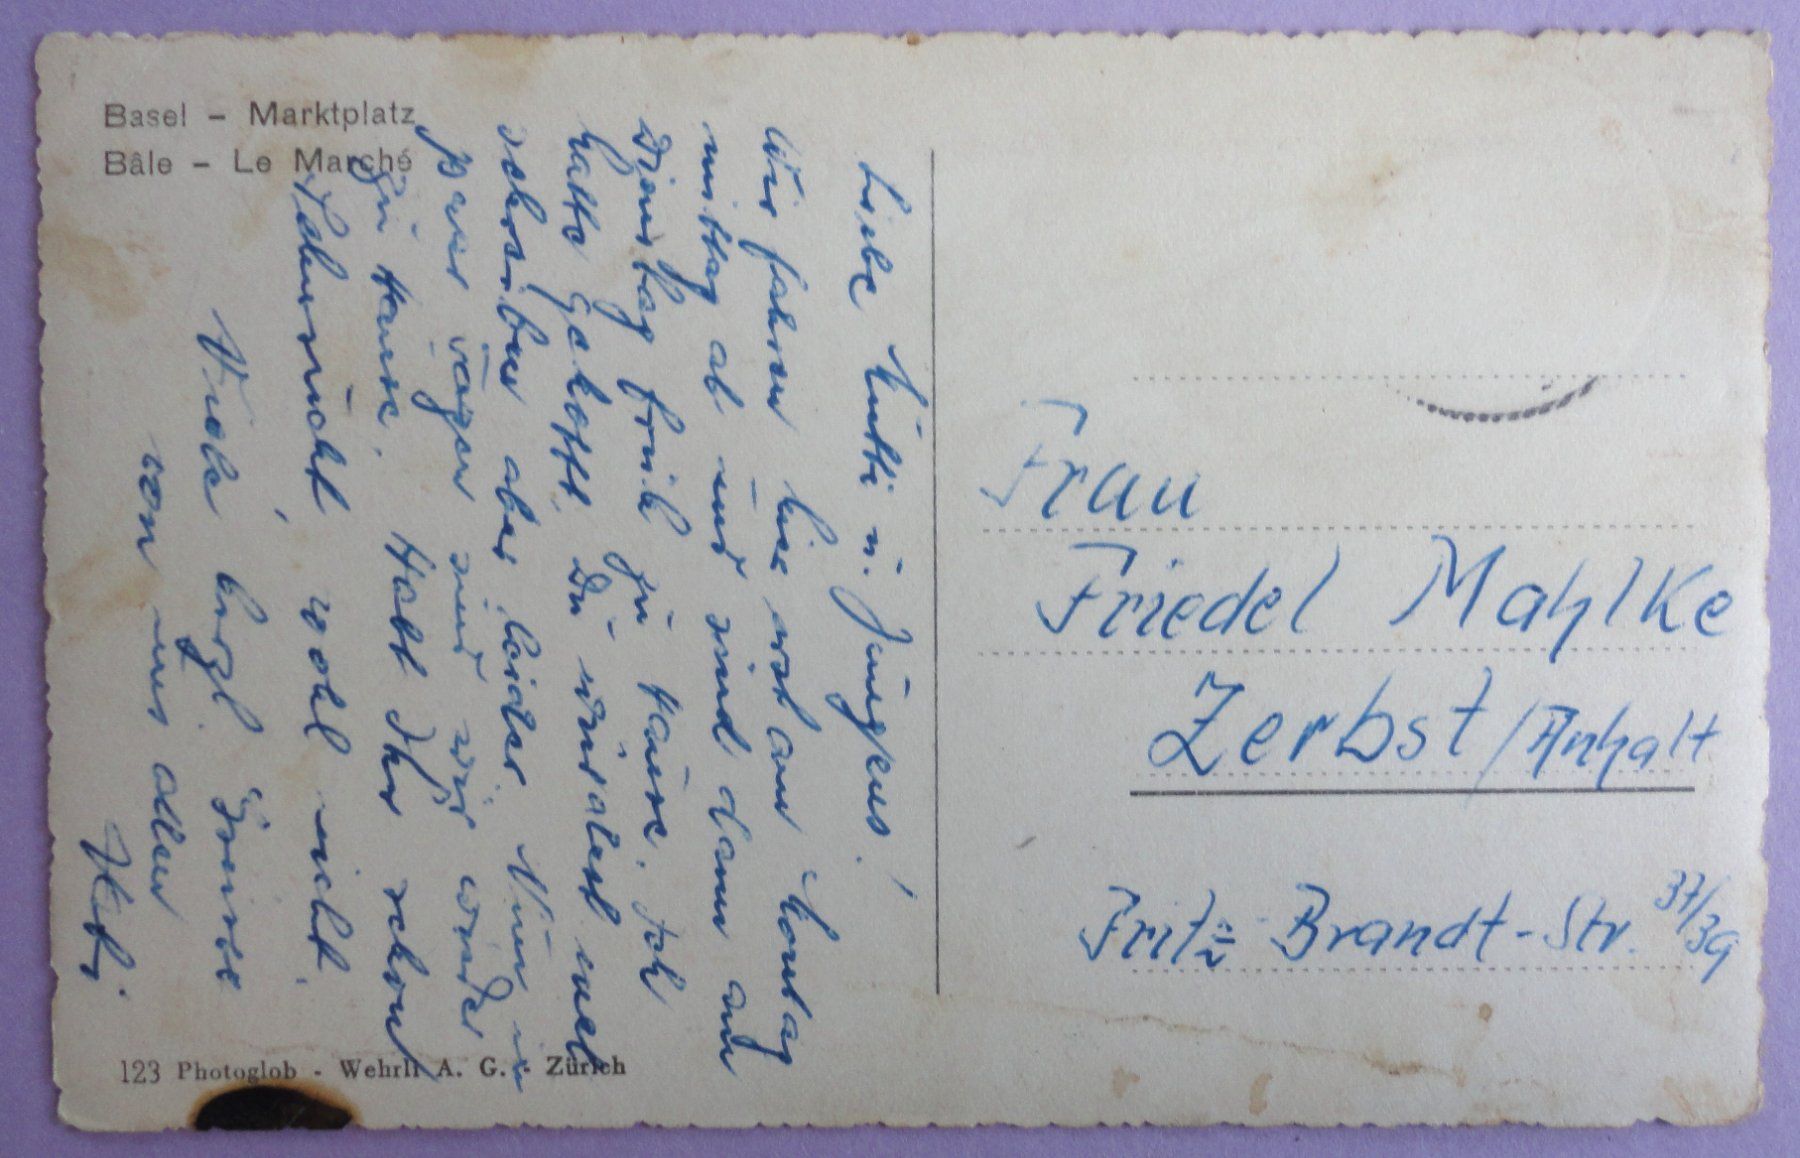 Basel – Marktplatz
Bâle – Le Marché
Liebe Mutti u. Jungens!
Wir fahren hier erst am Montag
mittag ab und sind dann am
Dienstag früh zu Hause. Ich
hatte gehofft, Du würdest mal
schreiben aber leider. Nun in
paar Tagen sind wir wieder
zu Hause. Habt Ihr schon
Sehnsucht, wohl nicht.
Viele herzl. Grüsse
von uns allen
Frau
Friedel Mahlke
Zerbst / Anhalt
Fritz Brandt-Str. 37/39
123 Photoglob - Wehrli A. G. - Zürich